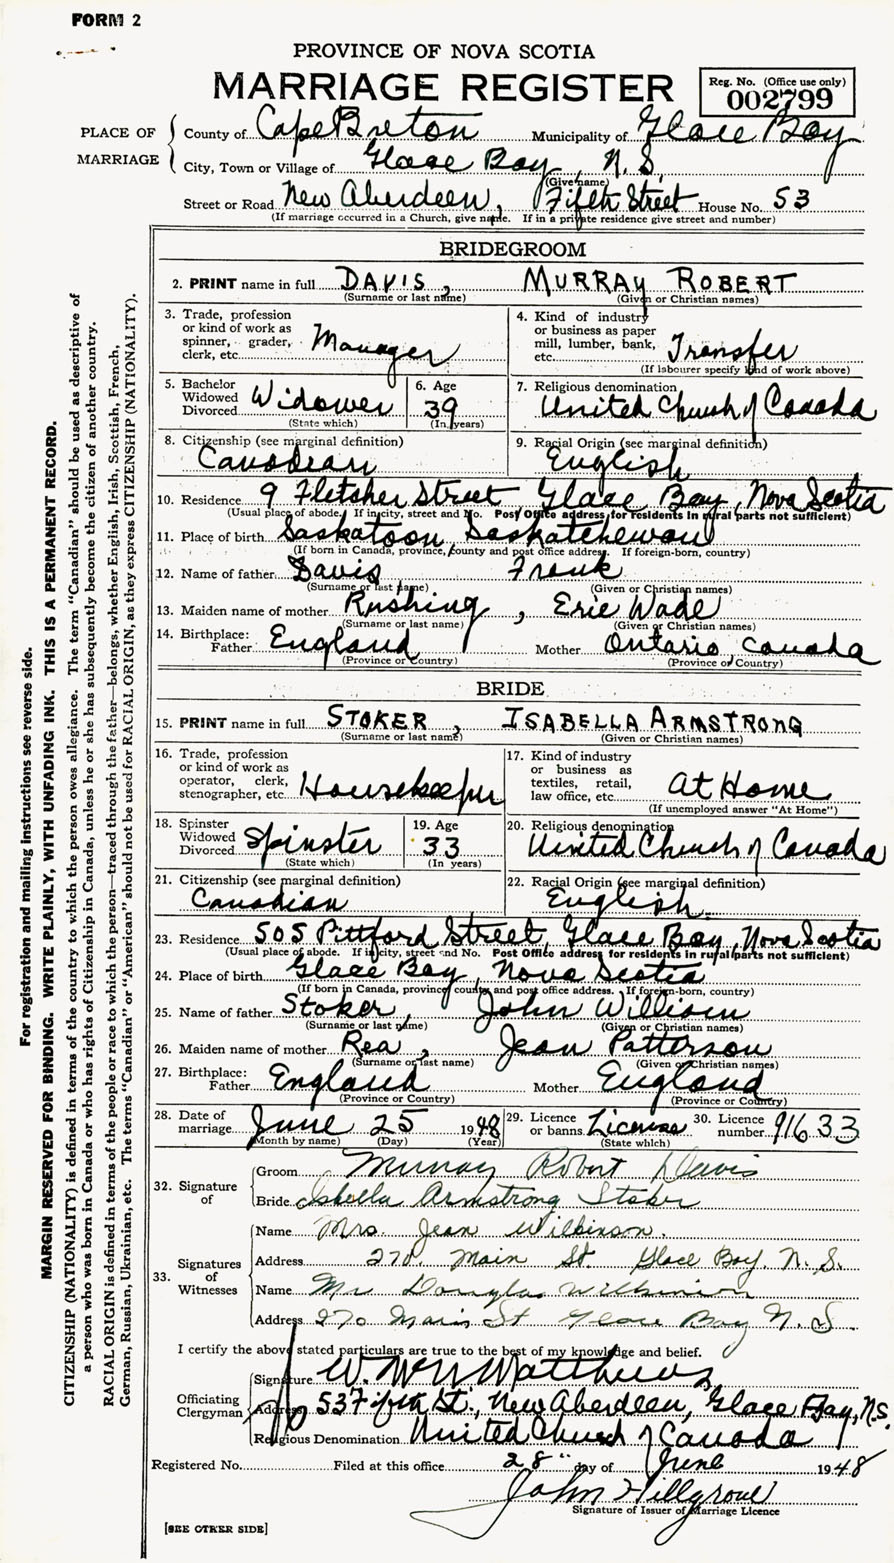 FORM 2
PROVINCE OF NOVA SCOTIA
MARRIAGE REGISTER
Reg. No. (Office use only)
002799
PLACE OF MARRIAGE
County of Cape Breton Municipality of Glace Bay
City, Town or Village of Glace Bay, N.S.
(Give name)
Street or Road New Aberdeen, Fifth Street House No. 53
(If marriage occurred in a Church, give name. If in a private residence give street and number)
BRIDEGROOM
2. PRINT name in full DAVIS, MURRAY ROBERT
(Surname or last name) (Given or Christian names)
3. Trade, profession or kind of work as spinner, grader, clerk, etc. Manager
4. Kind of industry or business as paper mill, lumber, bank, etc. Transfer
(If labourer specify kind of work above)
5. Bachelor Widowed Divorced Widower
(State which)
6. Age 39
(In years)
7. Religious denomination United Church of Canada
8. Citizenship (see marginal definition)
Canadian
9. Racial Origin (see marginal definition)
English
10. Residence 9 Fletsher Street Glace Bay, Nova Scotia
(Usual place of abode. If in city, street and No. Post Office address for residents in rural parts not sufficient)
11. Place of birth Saskatoon Saskatchewan
(If born in Canada, province, county and post office address. If foreign-born, country)
12. Name of father Davis Frank
(Surname or last name) (Given or Christian names)
13. Maiden name of mother Rushing, Erie Wade
(Surname or last name) (Given or Christian names)
14. Birthplace: Father England Mother Ontario, Canada
(Province or Country) (Province or Country)
BRIDE
15. PRINT name in full STOKER, ISABELLA ARMSTRONG
(Surname or last name) (Given or Christian names)
16. Trade, profession or kind of work as operator, clerk, stenographer, etc. Housekeeper
17. Kind of industry or business as textiles, retail, law office, etc. At Home
(If unemployed answer "At Home")
18. Spinster Widowed Divorced Spinster
(State which)
19. Age 33
(In years)
20. Religious denomination
United Church of Canada
21. Citizenship (see marginal definition)
Canadian
22. Racial Origin (see marginal definition)
English.
23. Residence 505 Pittford Street, Glace Bay, Nova Scotia
(Usual place of abode. If in city, street and No. Post Office address for residents in rural parts not sufficient)
24. Place of birth Glace Bay, Nova Scotia
(If born in Canada, province, county and post office address. If foreign-born, country)
25. Name of father Stoker, John William
(Surname or last name) (Given or Christian names)
26. Maiden name of mother Rea, Jean Patterson
(Surname or last name) (Given or Christian names)
27. Birthplace: Father England Mother England
(Province or Country) (Province or Country)
28. Date of marriage June 25 1948
(Month by name) (Day) (Year)
29. Licence or banns License
(State which)
30. Licence number 91633
32. Signature of
Groom Murray Robert Davis
Bride Isabella Armstrong Stoker
33. Signatures of Witnesses
Name Mrs. Jean Wilkinson.
Address 270. Main St. Glace Bay. N. S.
Name Mr Douglas Wilkinson
Address 270 Main St Glace Bay N. S.
I certify the above stated particulars are true to the best of my knowledge and belief.
Officiating Clergyman
Signature W. Matthews
Address 53 Fifth St., New Aberdeen, Glace Bay, N.S.
Religious Denomination United Church of Canada
Registered No. Filed at this office 28" day of June 1948
John Hillgrove
Signature of Issuer of Marriage Licence
[SEE OTHER SIDE]
For registration and mailing instructions see reverse side.
MARGIN RESERVED FOR BINDING. WRITE PLAINLY, WITH UNFADING INK. THIS IS A PERMANENT RECORD.
CITIZENSHIP (NATIONALITY) is defined in terms of the country to which the person owes allegiance. The term "Canadian" should be used as descriptive of
a person who was born in Canada or who has rights of Citizenship in Canada, unless he or she has subsequently become the citizen of another country.
RACIAL ORIGIN is defined in terms of the people or race to which the person—traced through the father—belongs, whether English, Irish, Scottish, French,
German, Russian, Ukrainian, etc. The terms "Canadian" or "American" should not be used for RACIAL ORIGIN, as they express CITIZENSHIP (NATIONALITY).